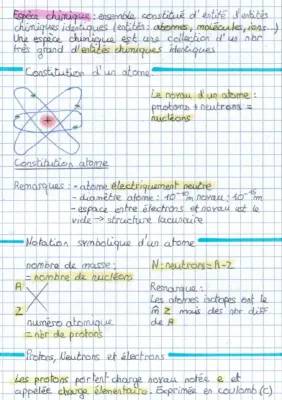 Espèce chimique : ensemble constitué d'entité d'entités
chimiques identiques (entités : atomes, molécules, ions...)
Une espèce chimique est une collection d'un nbr
très grand d'entités chimiques identiques
Constitution d'un atome
Le noyau d'un atome :
protons + neutrons =
nucléons
Constitution atome
Remarques : - atome électriquement neutre
- diamètre atome : 10⁻¹⁰m noyau : 10⁻¹⁵m
- espace entre électrons et noyau est le
vide → structure lacunaire
Notation symbolique d'un atome
nombre de masse :
= nombre de nucléons
A
X
Z
numéro atomique
= nbr de protons
N : neutrons = A-Z
Remarque :
Les atomes isotopes ont le
m̂ Z mais des nbr diff
de A
Protons, Neutrons et électrons
Les protons portent charge noyau notée e et
appelée charge élémentaire. Exprimée en coulomb (C)